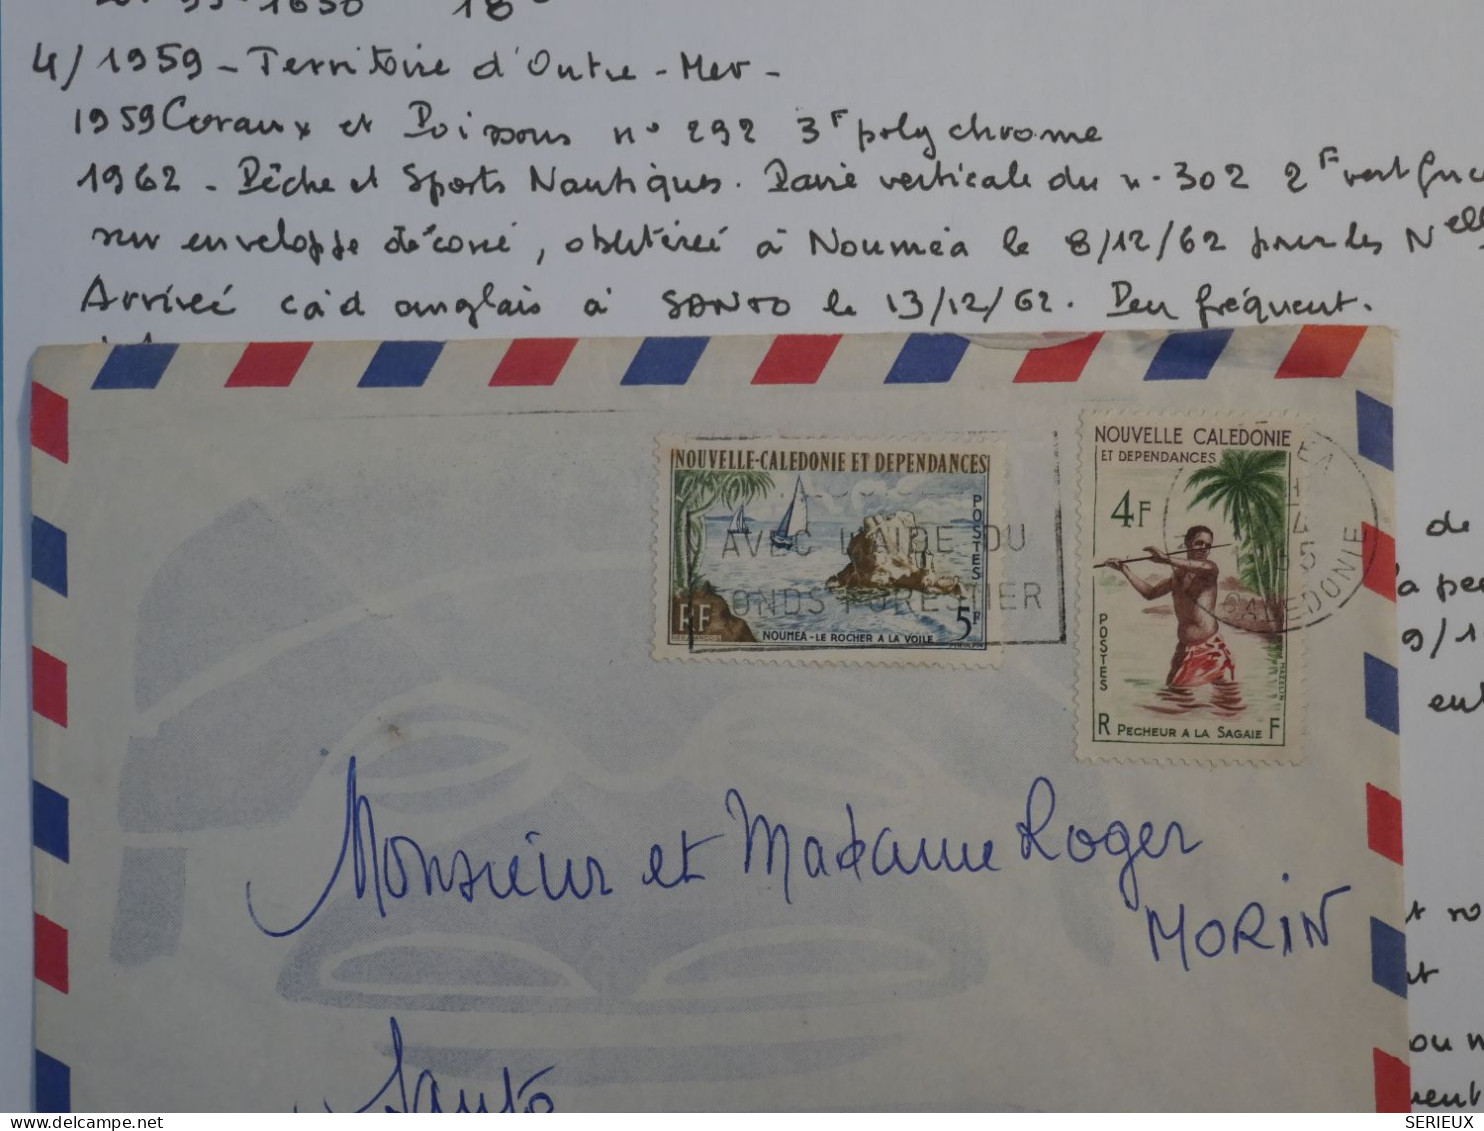 1650 18
4/ 1959 - Territoire d'Outre-Mer -
1959 Coraux et Poissons n° 292 3F polychrome
1962 - Pêche et Sports Nautiques. Paire verticale du n° 302 2F vert
sur enveloppe décoré, oblitéré à Nouméa le 8/12/62 pour les Nell
Arriveé càd anglais à SANTO le 13/12/62. Peu fréquent.
NOUVELLE-CALEDONIE ET DEPENDANCES
POSTES
AVEC L'AIDE DU
FONDS FORESTIER
RF
5F
NOUMEA - LE ROCHER A LA VOILE
NOUVELLE CALEDONIE
ET DEPENDANCES
4F
POSTES
R PECHEUR A LA SAGAIE F
MAZELIN
CALEDONIE
de
la pe
9/1
ent
Monsieur et Madame Roger
MORIN
Santo
ou
ment
SERIEUX